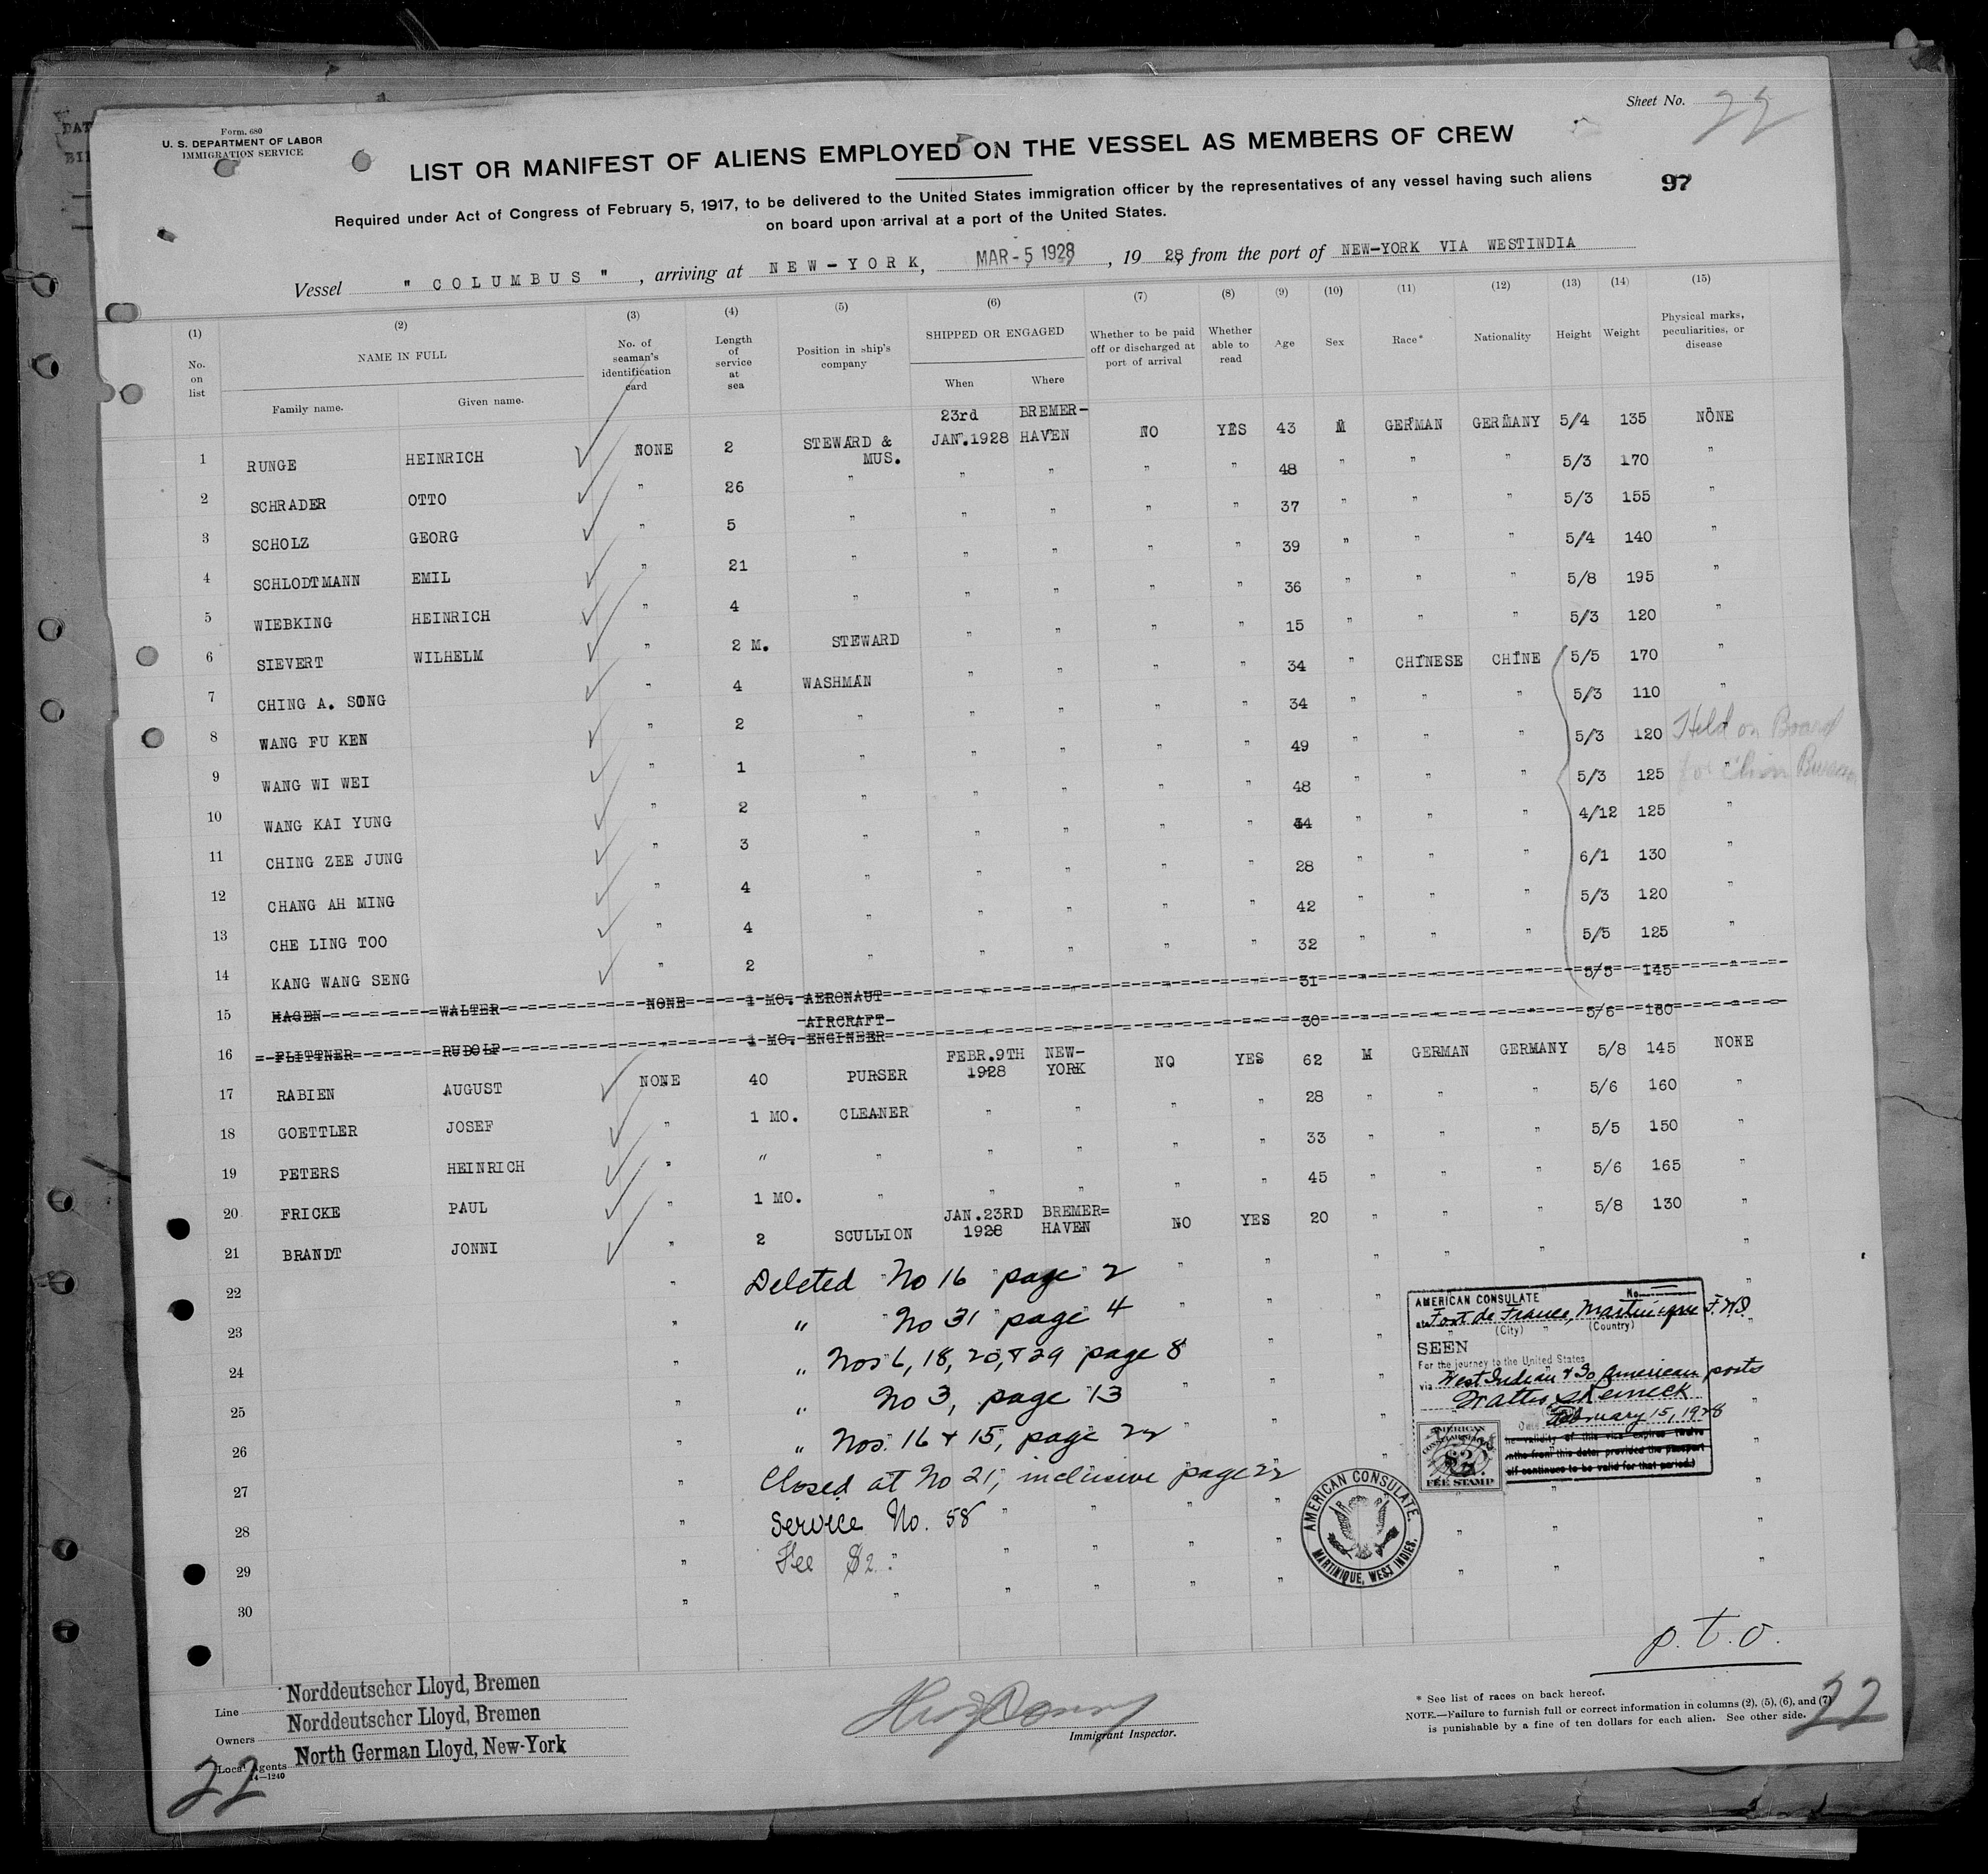 Sheet No. 22
Form. 680
U. S. DEPARTMENT OF LABOR
IMMIGRATION SERVICE
LIST OR MANIFEST OF ALIENS EMPLOYED ON THE VESSEL AS MEMBERS OF CREW
97
Required under Act of Congress of February 5, 1917, to be delivered to the United States immigration officer by the representatives of any vessel having such aliens
on board upon arrival at a port of the United States.
Vessel " COLUMBUS " , arriving at NEW-YORK, MAR - 5 1928 , 19 28, from the port of NEW-YORK VIA WESTINDIA
(1) (2) (3) (4) (5) (6) (7) (8) (9) (10) (11) (12) (13) (14) (15)
No. on list NAME IN FULL Family name. Given name. No. of seaman's identification card Length of service at sea Position in ship's company SHIPPED OR ENGAGED When Where Whether to be paid off or discharged at port of arrival Whether able to read Age Sex Race* Nationality Height Weight Physical marks, peculiarities, or disease
1 RUNGE HEINRICH NONE 2 STEWARD & MUS. 23rd JAN.1928 BREMER-HAVEN NO YES 43 M GERMAN GERMANY 5/4 135 NONE
2 SCHRADER OTTO " 26 " " " " " 48 " " " 5/3 170 "
3 SCHOLZ GEORG " 5 " " " " " 37 " " " 5/3 155 "
4 SCHLODTMANN EMIL " 21 " " " " " 39 " " " 5/4 140 "
5 WIEBKING HEINRICH " 4 " " " " " 36 " " " 5/8 195 "
6 SIEVERT WILHELM " 2 M. STEWARD " " " " 15 " " " 5/3 120 "
7 CHING A. SONG " 4 WASHMAN " " " " 34 " CHINESE CHINE 5/5 170 "
8 WANG FU KEN " 2 " " " " " 34 " " " 5/3 110 "
9 WANG WI WEI " 1 " " " " " 49 " " " 5/3 120 Held on Board
10 WANG KAI YUNG " 2 " " " " " 48 " " " 5/3 125 "
11 CHING ZEE JUNG " 3 " " " " " " " " 4/12 125 "
12 CHANG AH MING " 4 " " " " " 28 " " " 6/1 130 "
13 CHE LING TOO " 4 " " " " " 42 " " " 5/3 120 "
14 KANG WANG SENG " 2 " " " " " 32 " " " 5/5 125 "
15 HAGEN WALTER NONE 1 MO. AERONAUT " " " " 31 " " " 5/5 145 "
16 PLITTNER RUDOLF " 1 MO. AIRCRAFT ENGINEER 30 5/6 160 "
17 RABIEN AUGUST NONE 40 PURSER FEBR.9TH 1928 NEW-YORK NO YES 62 M GERMAN GERMANY 5/8 145 NONE
18 GOETTLER JOSEF " 1 MO. CLEANER " " " " 28 " " " 5/6 160 "
19 PETERS HEINRICH " " " " " " " 33 " " " 5/5 150 "
20 FRICKE PAUL " 1 MO. " " " " " 45 " " " 5/6 165 "
21 BRANDT JONNI " 2 SCULLION JAN.23RD 1928 BREMER=HAVEN NO YES 20 " " " 5/8 130 "
22 " Deleted No 16 page 2
23 " " No 31 page 4
24 " " Nos 6, 18, 20, & 29 page 8
25 " " No 3, page 13
26 " " Nos. 16 & 15, page 22
27 " Closed at No 21, inclusive page 22
28 " Service No. 58
29 " Fee $2.
30 "
AMERICAN CONSULATE No.
at Fort de France, Martinique F.W.I.
(City) (Country)
SEEN
For the journey to the United States
via West Indian & So American ports
February 15, 1928
AMERICAN
$2
FEE STAMP
AMERICAN CONSULATE.
MARTINIQUE, WEST INDIES.
p.t.o.
Line Norddeutscher Lloyd, Bremen
Owners Norddeutscher Lloyd, Bremen
Local Agents North German Lloyd, New-York
14—1240
22
Immigrant Inspector.
* See list of races on back hereof.
NOTE.—Failure to furnish full or correct information in columns (2), (5), (6), and (7)
is punishable by a fine of ten dollars for each alien. See other side.
22